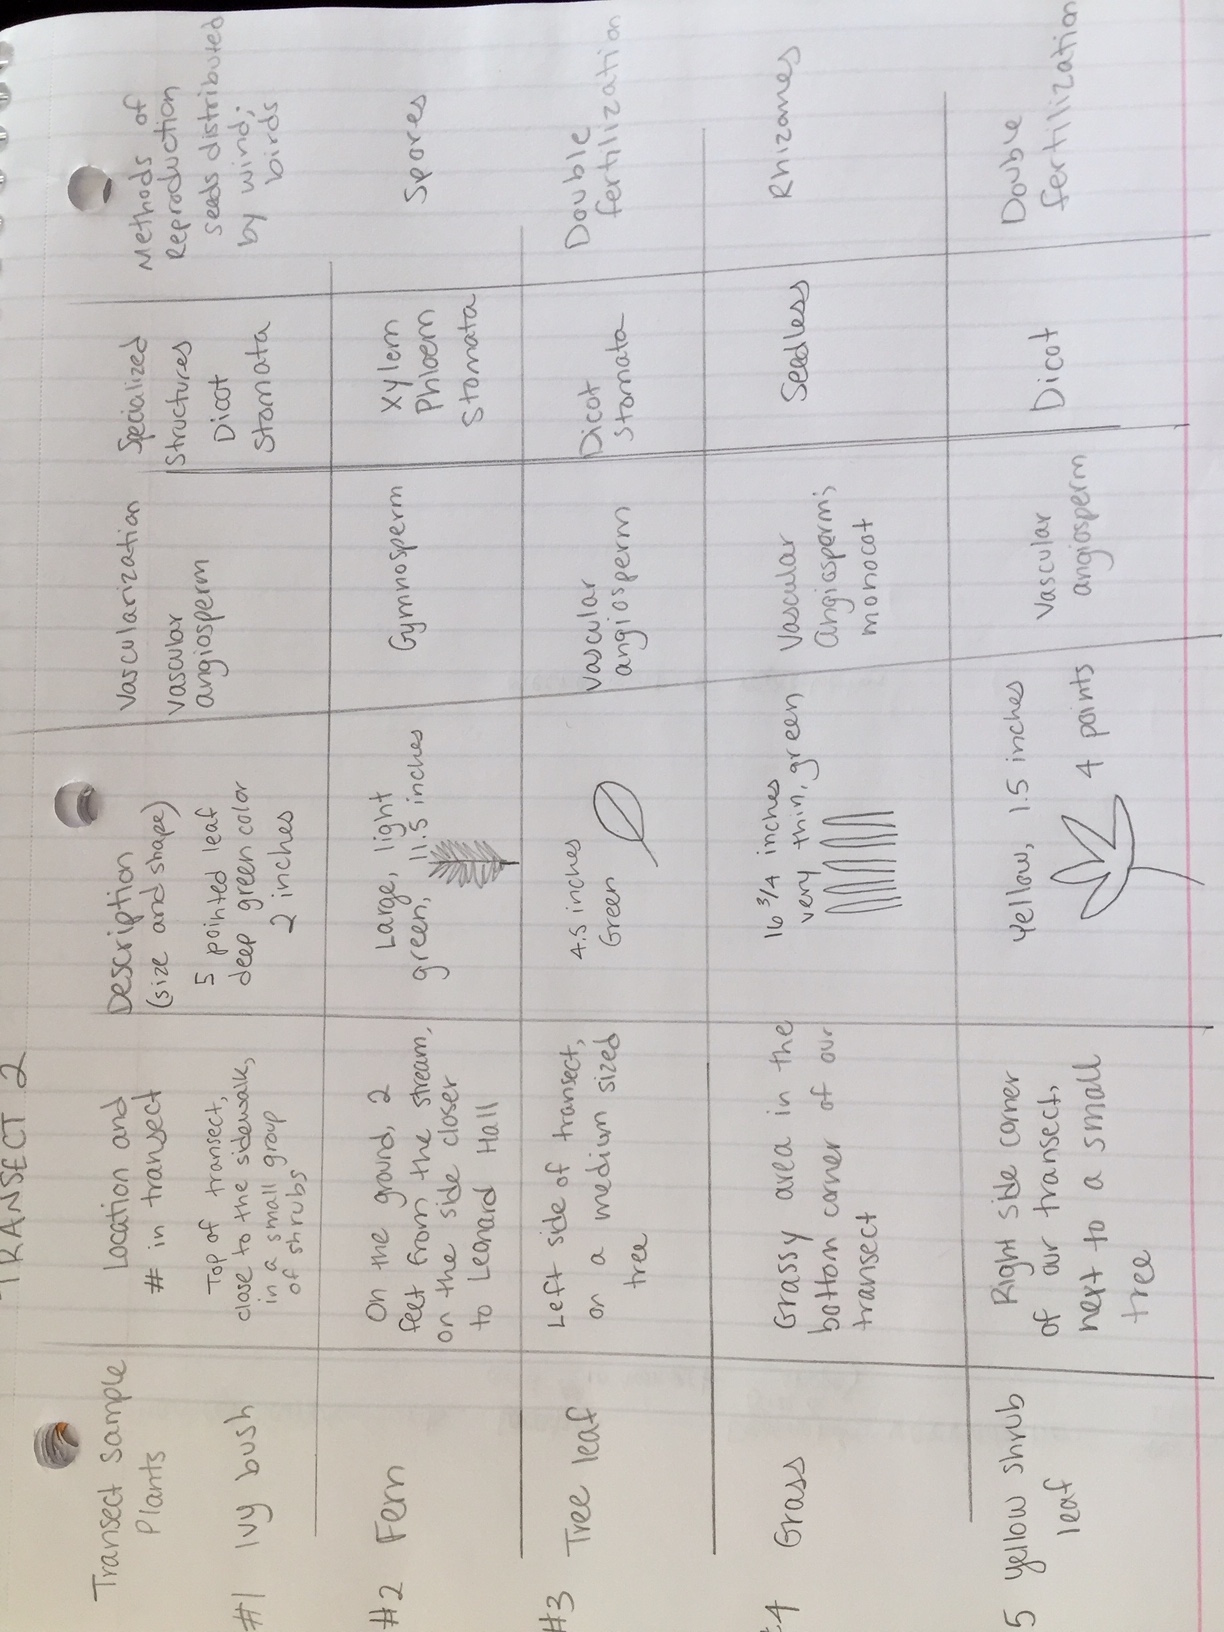 TRANSECT 2
Transect Sample
Plants
Location and
# in transect
Description
(size and shape)
Vascularization
Specialized
Structures
Methods of
Reproduction
#1 Ivy bush
Top of transect,
close to the sidewalk,
in a small group
of shrubs
5 pointed leaf
deep green color
2 inches
vascular
angiosperm
Dicot
Stomata
seeds distributed
by wind;
birds
#2 Fern
On the ground, 2
feet from the stream,
on the side closer
to Leonard Hall
Large, light
green, 11.5 inches
Gymnosperm
Xylem
Phloem
Stomata
Spores
#3 Tree leaf
Left side of transect,
on a medium sized
tree
4.5 inches
Green
Vascular
angiosperm
Dicot
Stomata
Double
fertilization
#4 Grass
Grassy area in the
bottom corner of our
transect
16 3/4 inches
very thin, green
Vascular
Angiosperm;
monocot
Seedless
Rhizomes
5 yellow shrub
leaf
Right side corner
of our transect,
next to a small
tree
Yellow, 1.5 inches
4 points
Vascular
angiosperm
Dicot
Double
fertilization